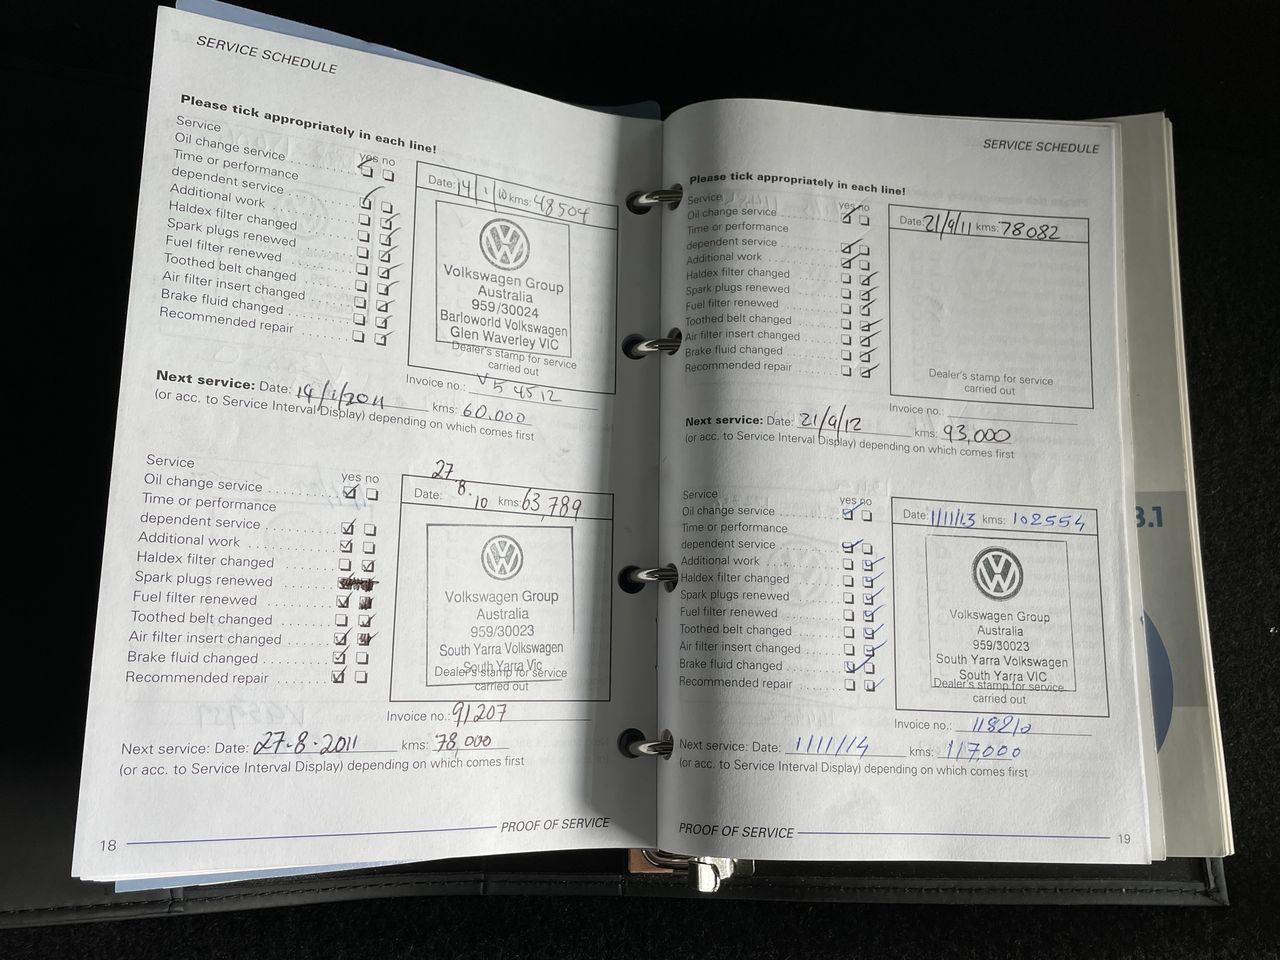 SERVICE SCHEDULE
Please tick appropriately in each line!
Service
yes no
Oil change service
Time or performance
dependent service
Additional work
Haldex filter changed
Spark plugs renewed
Fuel filter renewed
Toothed belt changed
Air filter insert changed
Brake fluid changed
Recommended repair
Date: 14/1/10 kms: 48504
Volkswagen Group
Australia
959/30024
Barloworld Volkswagen
Glen Waverley VIC
Dealer's stamp for service
carried out
Invoice no.: V54512
Next service: Date: 14/1/2011 kms: 60.000
(or acc. to Service Interval Display) depending on which comes first
Service
yes no
Oil change service
Time or performance
dependent service
Additional work
Haldex filter changed
Spark plugs renewed
Fuel filter renewed
Toothed belt changed
Air filter insert changed
Brake fluid changed
Recommended repair
Date: 27.8.10 kms: 63,789
Volkswagen Group
Australia
959/30023
South Yarra Volkswagen
South Yarra Vic
Dealer's stamp for service
carried out
Invoice no.: 91207
Next service: Date: 27-8-2011 kms: 78,000
(or acc. to Service Interval Display) depending on which comes first
PROOF OF SERVICE
18
SERVICE SCHEDULE
Please tick appropriately in each line!
Service
yes no
Oil change service
Time or performance
dependent service
Additional work
Haldex filter changed
Spark plugs renewed
Fuel filter renewed
Toothed belt changed
Air filter insert changed
Brake fluid changed
Recommended repair
Date: 21/9/11 kms: 78082
Dealer's stamp for service
carried out
Invoice no.:
Next service: Date: 21/9/12 kms: 93,000
(or acc. to Service Interval Display) depending on which comes first
Service
yes no
Oil change service
Time or performance
dependent service
Additional work
Haldex filter changed
Spark plugs renewed
Fuel filter renewed
Toothed belt changed
Air filter insert changed
Brake fluid changed
Recommended repair
Date: 1/11/13 kms: 102554
Volkswagen Group
Australia
959/30023
South Yarra Volkswagen
South Yarra VIC
Dealer's stamp for service
carried out
Invoice no.:
Next service: Date: 1/11/14 kms: 117,000
(or acc. to Service Interval Display) depending on which comes first
PROOF OF SERVICE
19
3.1